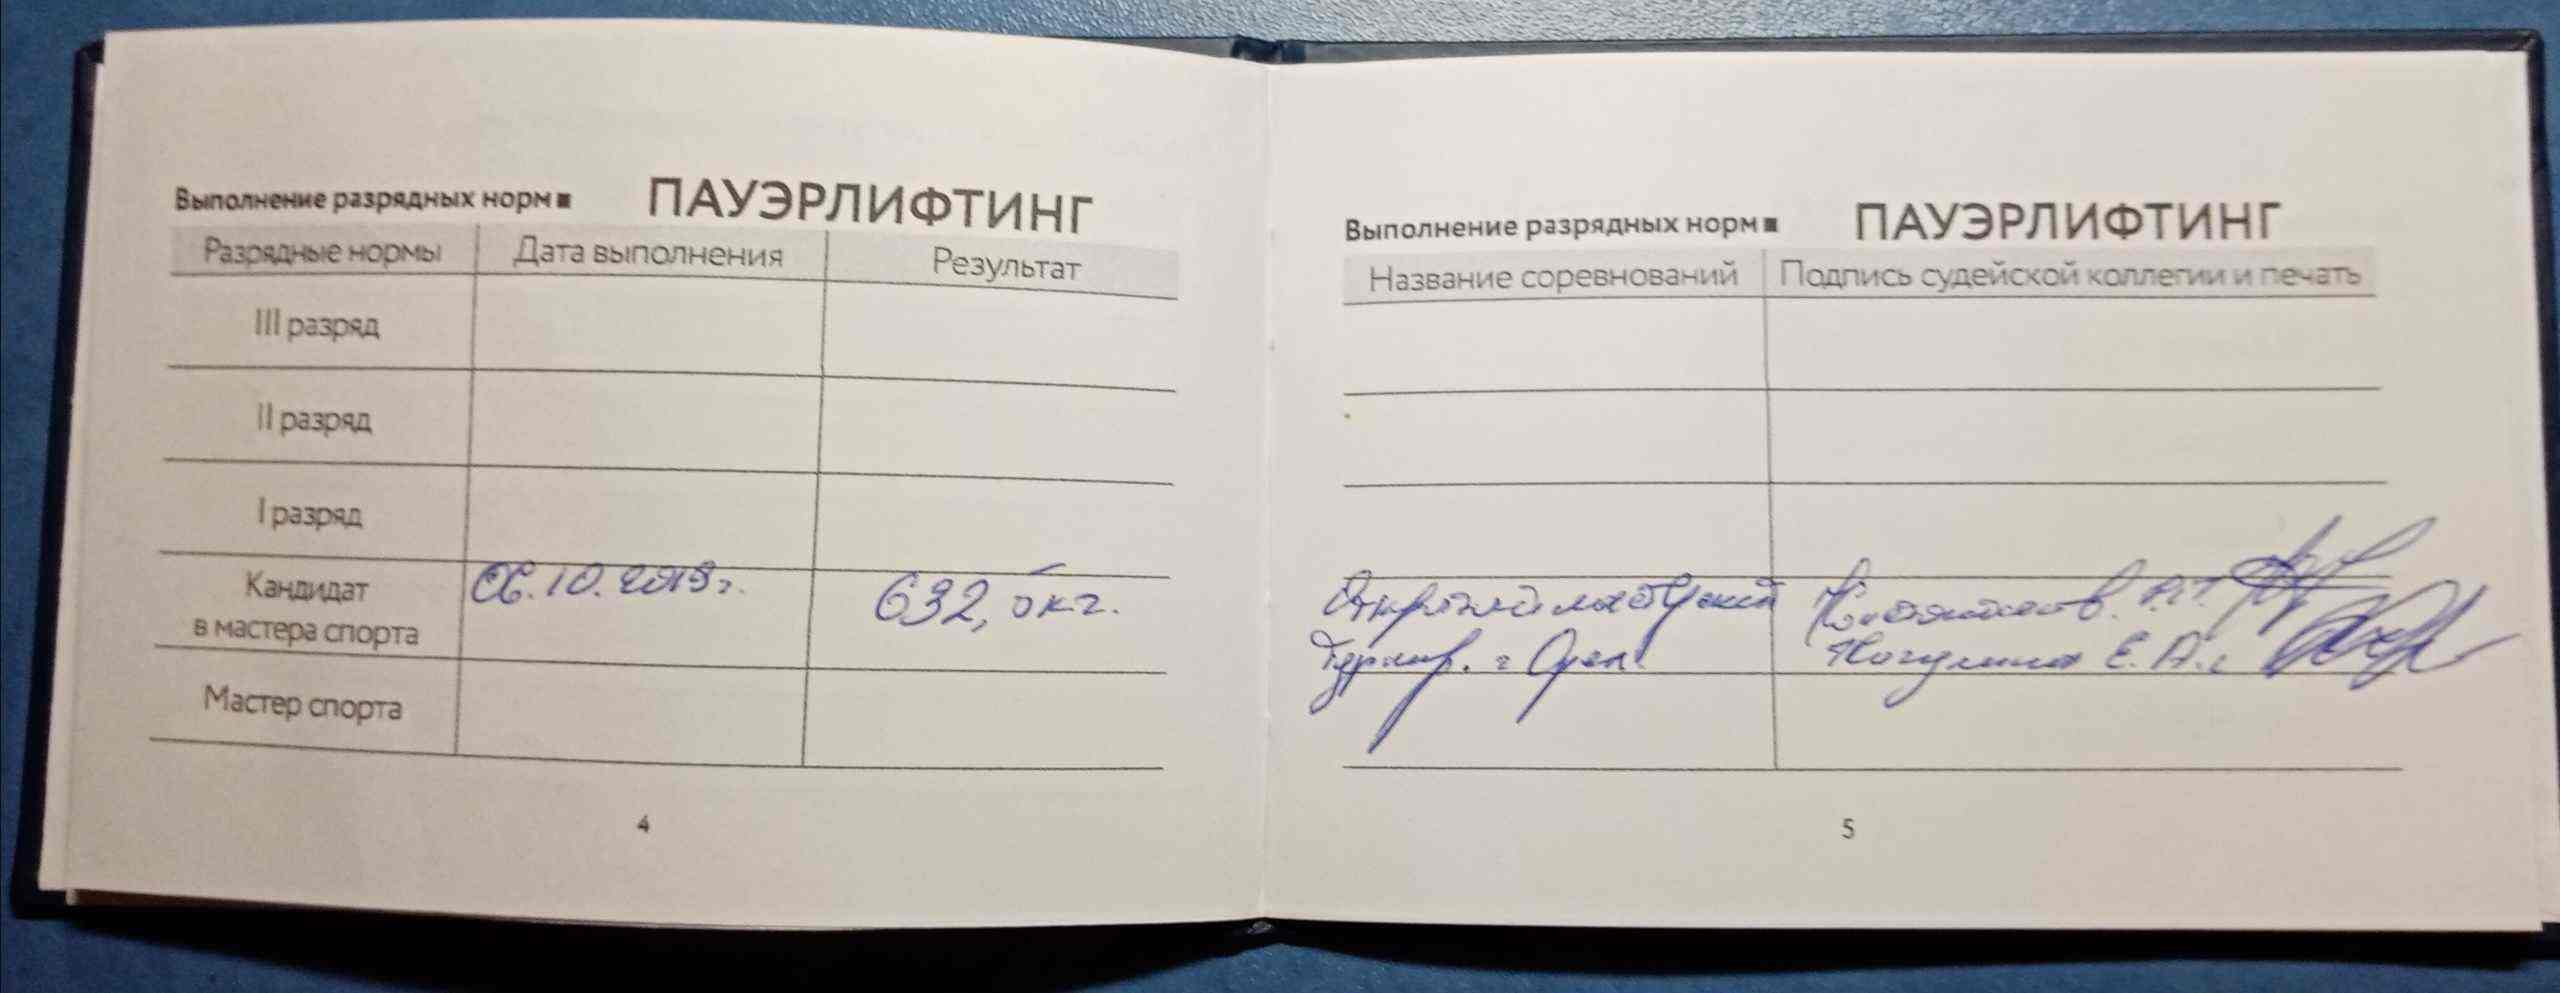 Выполнение разрядных норм ■ ПАУЭРЛИФТИНГ
Разрядные нормы Дата выполнения Результат
III разряд
II разряд
I разряд
Кандидат
в мастера спорта
06.10.2019г. 632,5кг.
Мастер спорта
4
Выполнение разрядных норм ■ ПАУЭРЛИФТИНГ
Название соревнований Подпись судейской коллегии и печать
Открытый мастерский
Турнир. г Орел
Е.А.
5